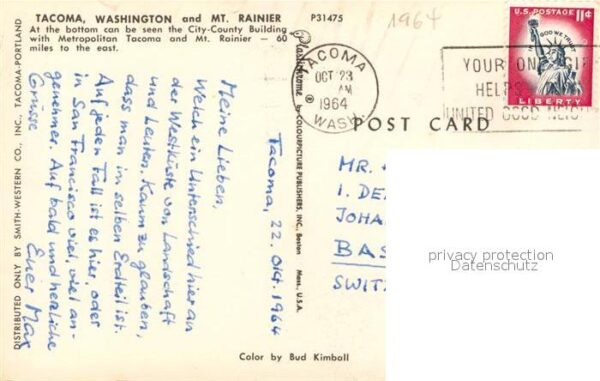 TACOMA, WASHINGTON and MT. RAINIER
At the bottom can be seen the City-County Building
with Metropolitan Tacoma and Mt. Rainier — 60
miles to the east.
P31475
1964
U.S. POSTAGE 11¢
IN GOD WE TRUST
LIBERTY
TACOMA
OCT 23
AM
1964
WASH.
YOUR ONE GI
HELPS
UNITED GOOD NEIG
POST CARD
DISTRIBUTED ONLY BY SMITH-WESTERN CO., INC., TACOMA-PORTLAND
Plastichrome ® by COLOURPICTURE PUBLISHERS, INC., Boston Mass., U.S.A.
Tacoma, 22. Okt. 1964
Meine Lieben,
Welch ein Unterschied hier an
der Westküste von Landschaft
und Leuten. Kaum zu glauben,
dass man im selben Erdteil ist.
Auf jeden Fall ist es hier, oder
in San Francisco viel, viel an-
genehmer. Auf bald und herzliche
Grüsse Euer Max
MR.
1. DE
JOHA
BAS
SWITZ
privacy protection
Datenschutz
Color by Bud Kimball